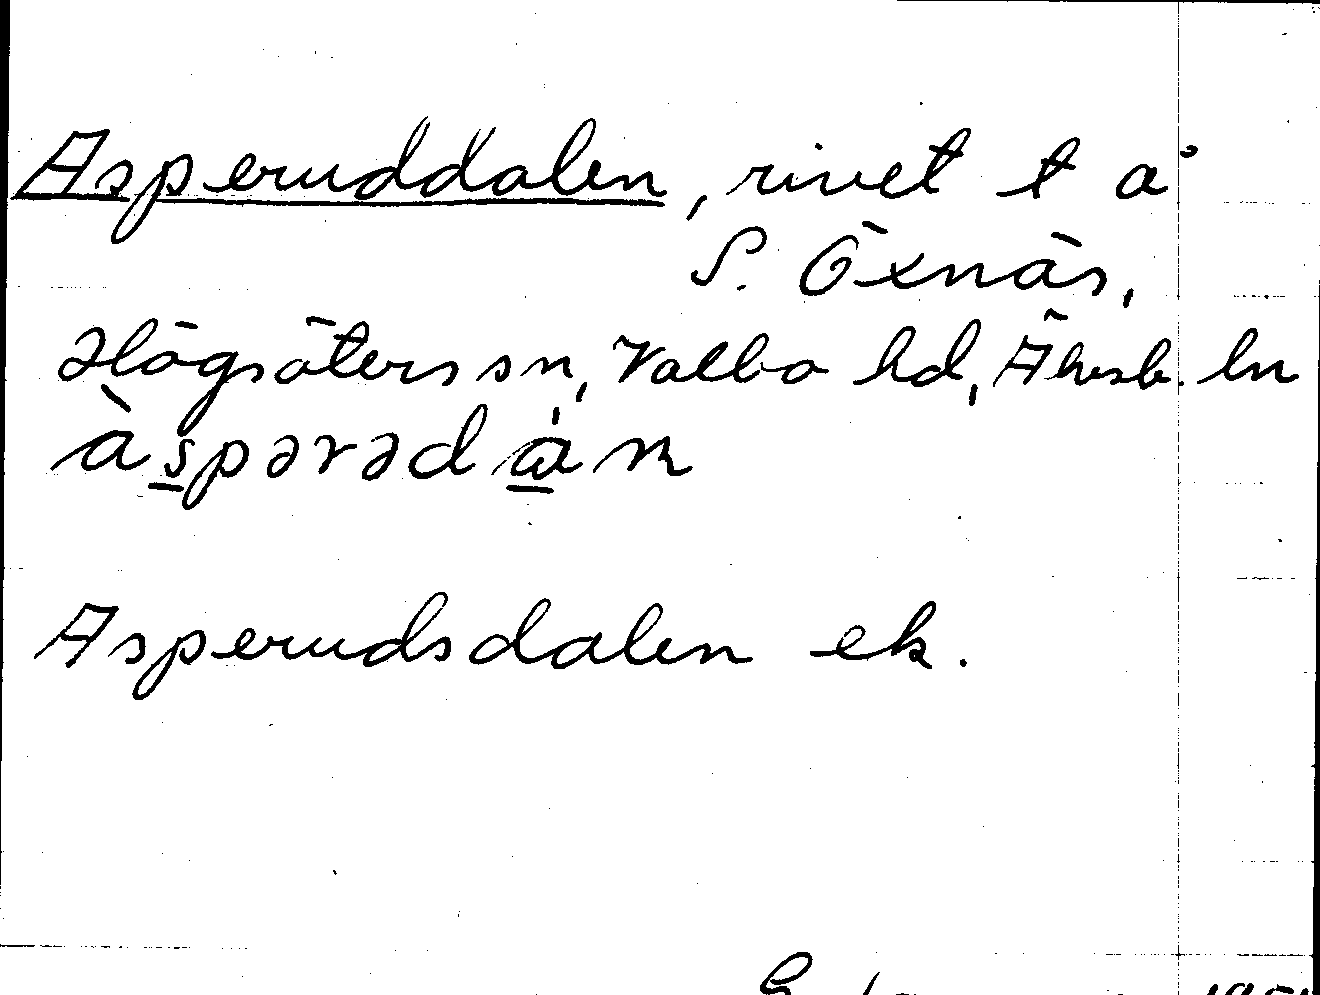 Asperuddalen, rivet t å
S. Öxnäs,
Högsäters sn, Valbo hd, Älvsb. ln
àspərədạ̊n
Asperudsdalen ek.